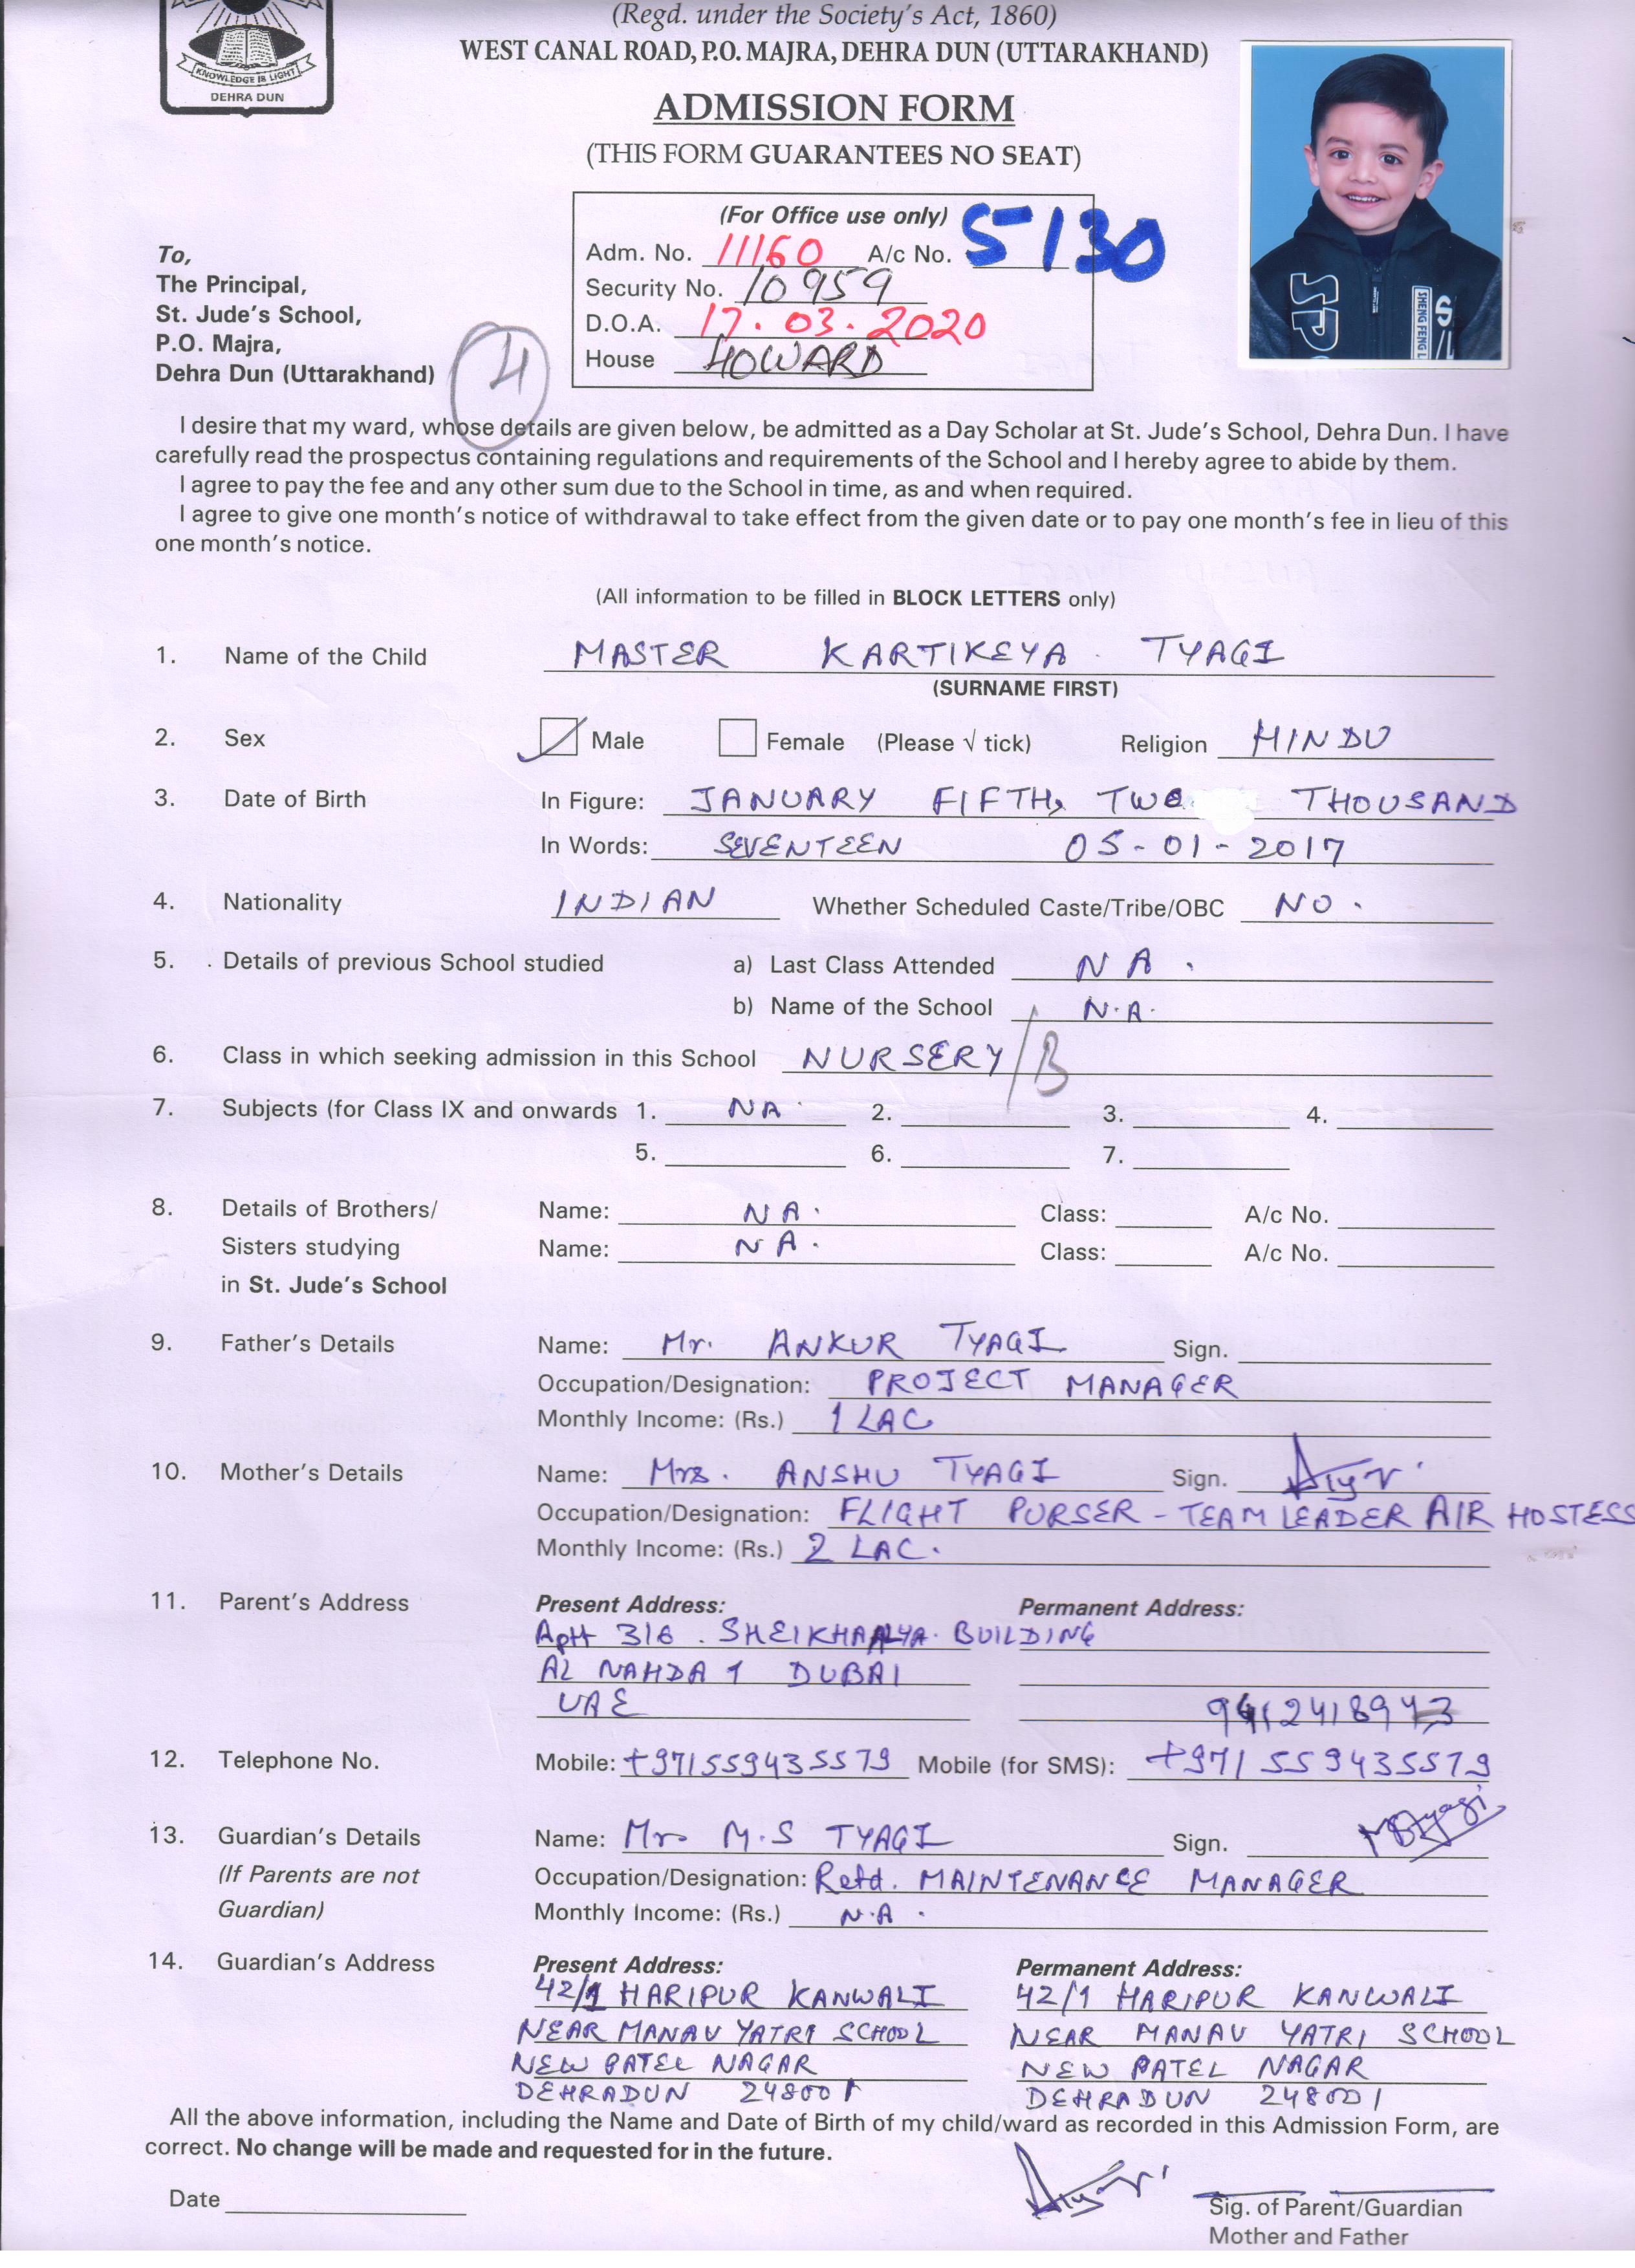 (Regd. under the Society's Act, 1860)
WEST CANAL ROAD, P.O. MAJRA, DEHRA DUN (UTTARAKHAND)
KNOWLEDGE IS LIGHT
DEHRA DUN
ADMISSION FORM
(THIS FORM GUARANTEES NO SEAT)
(For Office use only)
Adm. No. 11160 A/c No. 5130
Security No. 10959
D.O.A. 17.03.2020
House HOWARD
To,
The Principal,
St. Jude's School,
P.O. Majra,
Dehra Dun (Uttarakhand)
4
SHENG FENG
I desire that my ward, whose details are given below, be admitted as a Day Scholar at St. Jude's School, Dehra Dun. I have
carefully read the prospectus containing regulations and requirements of the School and I hereby agree to abide by them.
I agree to pay the fee and any other sum due to the School in time, as and when required.
I agree to give one month's notice of withdrawal to take effect from the given date or to pay one month's fee in lieu of this
one month's notice.
(All information to be filled in BLOCK LETTERS only)
1. Name of the Child MASTER KARTIKEYA TYAGI
(SURNAME FIRST)
2. Sex Male Female (Please √ tick) Religion HINDU
3. Date of Birth In Figure: JANUARY FIFTH, TWO THOUSAND
In Words: SEVENTEEN 05-01-2017
4. Nationality INDIAN Whether Scheduled Caste/Tribe/OBC NO.
5. Details of previous School studied a) Last Class Attended NA.
b) Name of the School N.A.
6. Class in which seeking admission in this School NURSERY/B
7. Subjects (for Class IX and onwards 1. NA 2. 3. 4.
5. 6. 7.
8. Details of Brothers/ Name: NA. Class: A/c No.
Sisters studying Name: NA. Class: A/c No.
in St. Jude's School
9. Father's Details Name: Mr. ANKUR TYAGI Sign.
Occupation/Designation: PROJECT MANAGER
Monthly Income: (Rs.) 1 LAC
10. Mother's Details Name: Mrs. ANSHU TYAGI Sign.
Occupation/Designation: FLIGHT PURSER - TEAM LEADER AIR HOSTESS
Monthly Income: (Rs.) 2 LAC.
11. Parent's Address Present Address: Permanent Address:
Aptt 316. BUILDING
AL NAHDA 1 DUBAI
UAE
12. Telephone No. Mobile: +971559435579 Mobile (for SMS): +971 559435579
13. Guardian's Details Name: Mr. M.S TYAGI Sign. MSTyagi
(If Parents are not Occupation/Designation: Retd. MAINTENANCE MANAGER
Guardian) Monthly Income: (Rs.) N.A.
14. Guardian's Address Present Address: Permanent Address:
42/1 HARIPUR KANWALI 42/1 HARIPUR KANWALI
NEAR MANAV YATRI SCHOOL NEAR MANAV YATRI SCHOOL
NEW PATEL NAGAR NEW PATEL NAGAR
DEHRADUN 248001 DEHRADUN 248001
All the above information, including the Name and Date of Birth of my child/ward as recorded in this Admission Form, are
correct. No change will be made and requested for in the future.
Date
Sig. of Parent/Guardian
Mother and Father